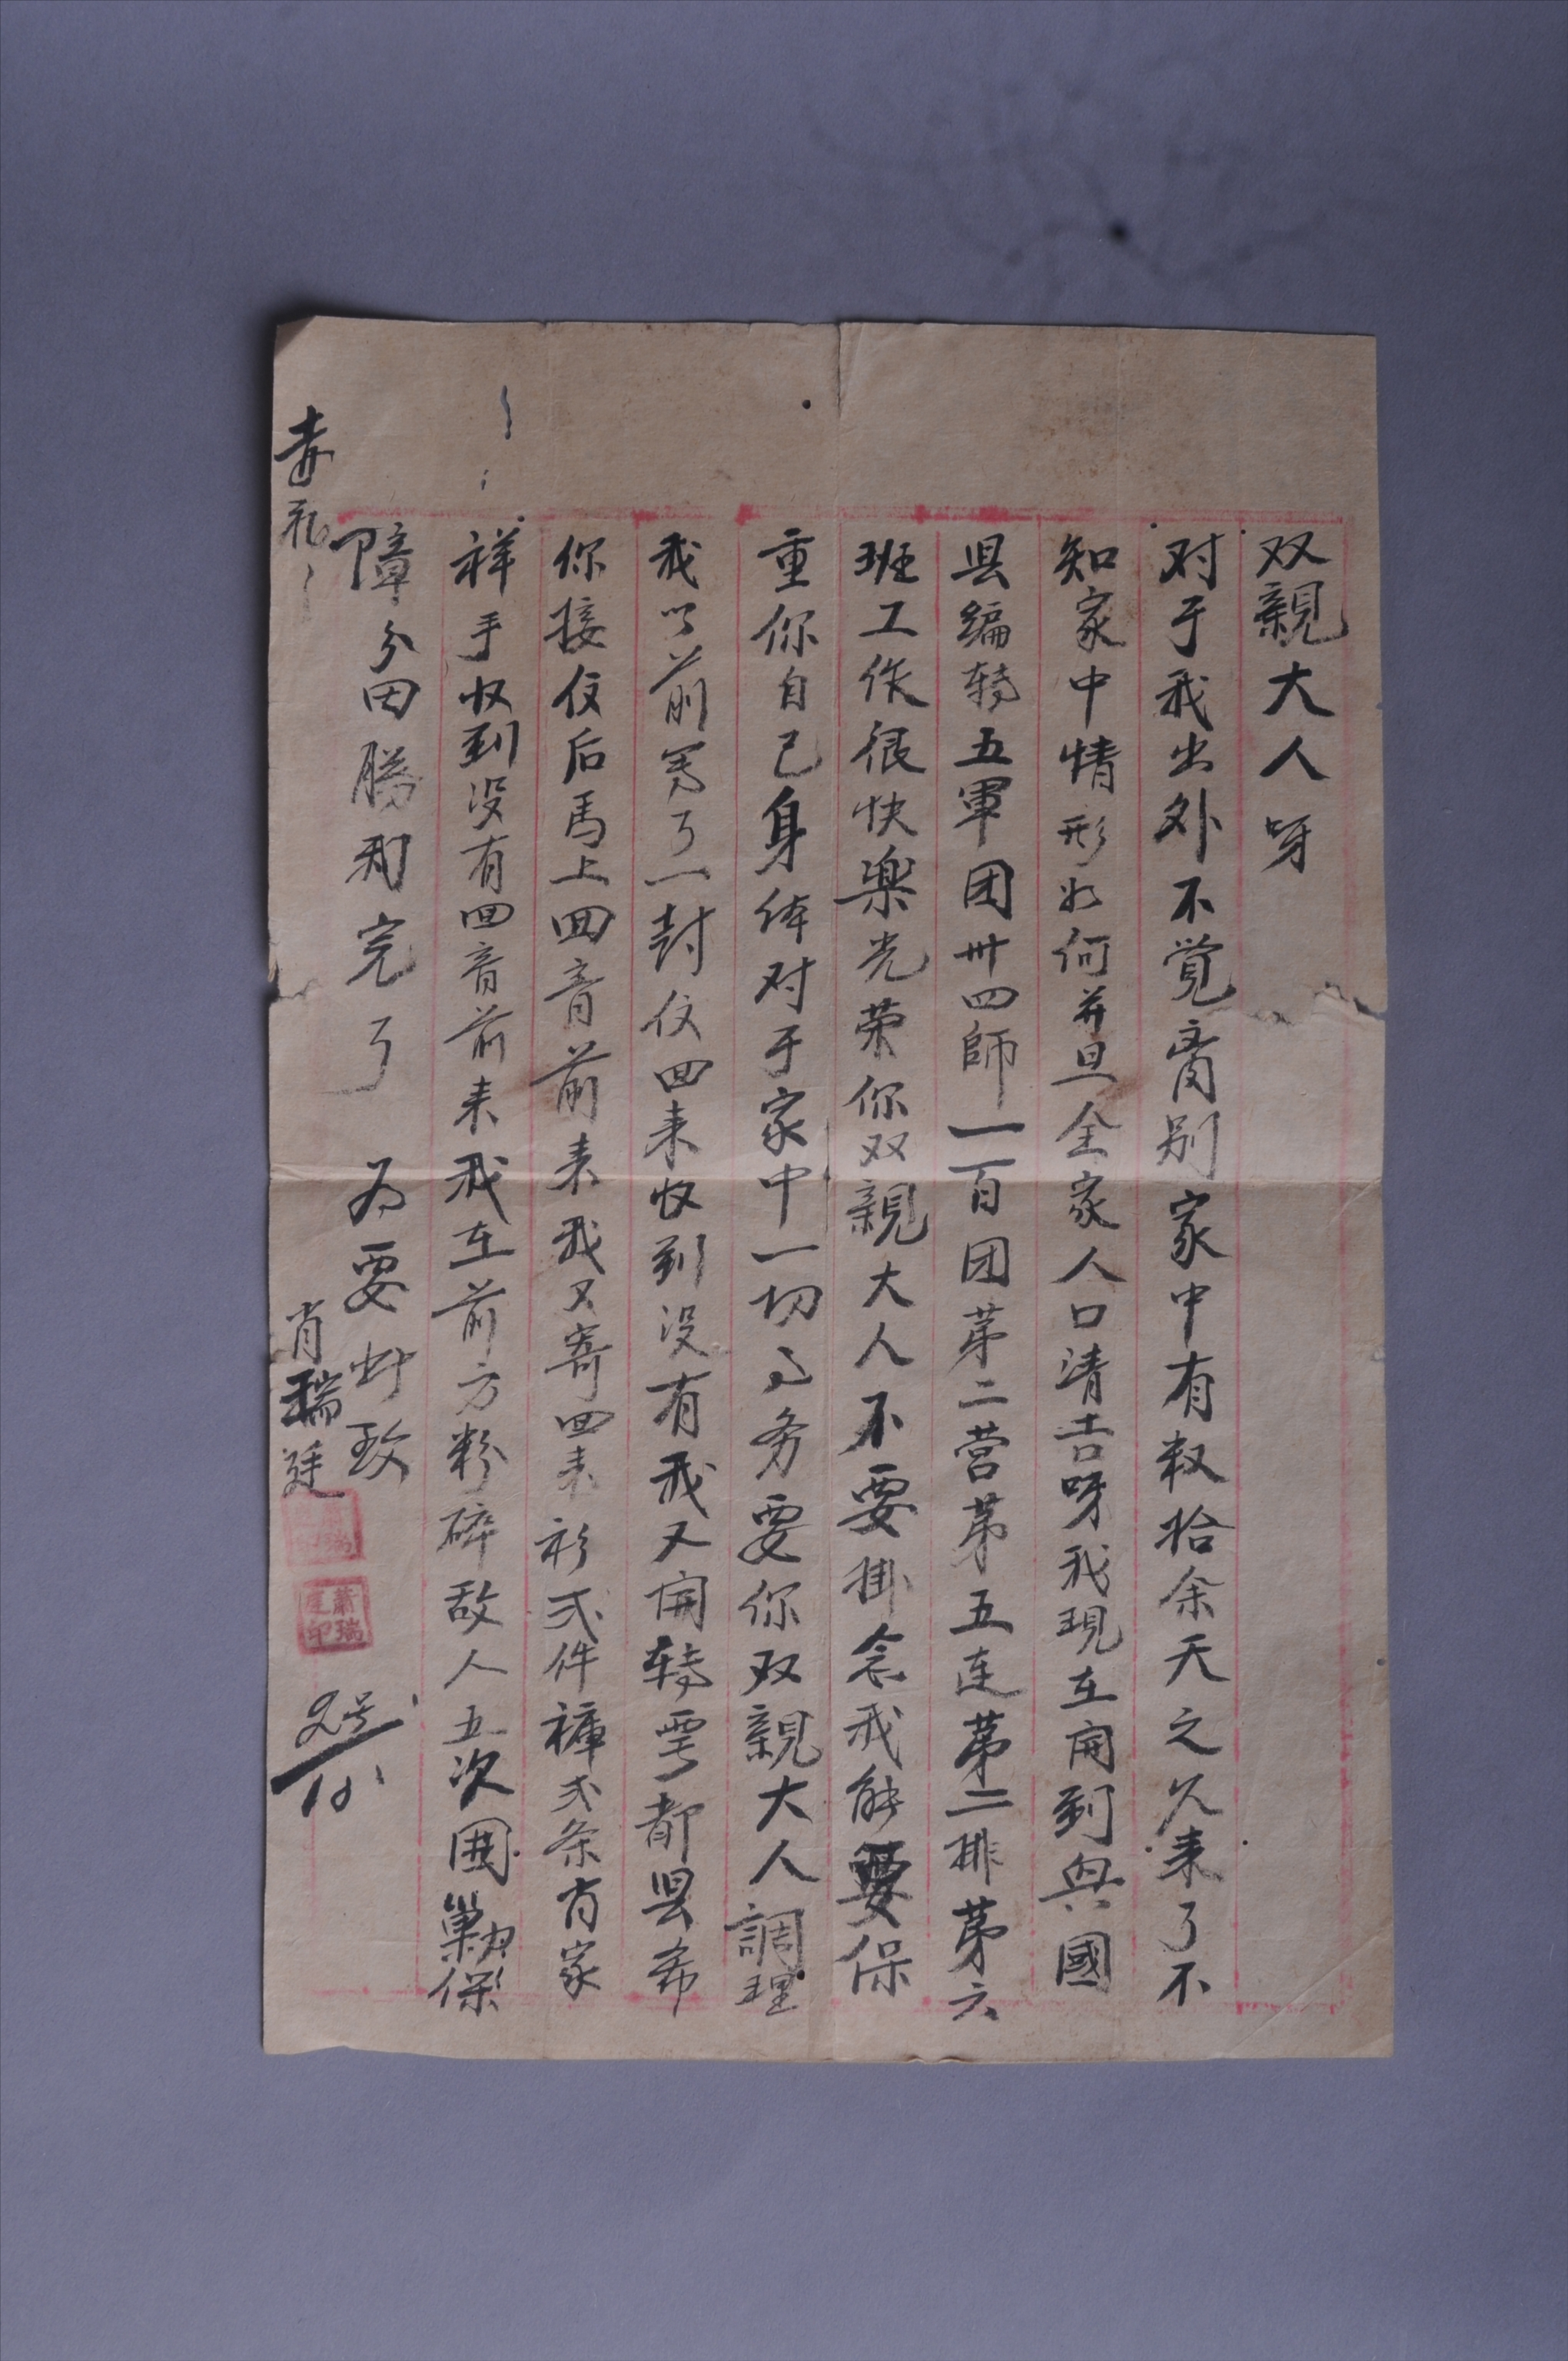 双親大人呀
对于我出外不覚离别家中有数拾余天之久来了不
知家中情形如何并且全家人口清吉呀我現在開到興國
县编转五軍团卅四師一百团苐二营苐五连苐二排苐六
班工作很快樂光荣你双親大人不要掛念我能要保
重你自己身体对于家中一切事务要你双親大人調理
我以前写了一封信回来收到没有我又開转雩都县希
你接信后馬上回音前来我又寄回来衫弍件褲弍条肖家
祥手收到没有回音前来我在前方粉碎敌人五次囲勦保
障分田勝利完了 为要此致
赤礼
肖瑞廷
蕭瑞廷印
2号/10